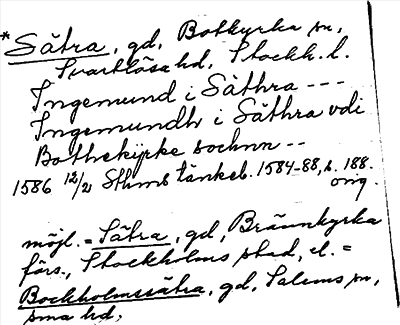 * Sätra, gd, Botkyrka sn,
Svartlösa hd, Stockh. l.
Ingemund i Säthra ---
Ingemundh i Säthra vdi
Bothekijrke sochnn --
1586 12/21 Sthms tänkeb. 1584-88, s. 188.
orig.
möjl. = Sätra, gd, Brännkyrka
förs., Stockholms stad, el. =
Bockholmssätra, gd, Salems sn,
sma hd,